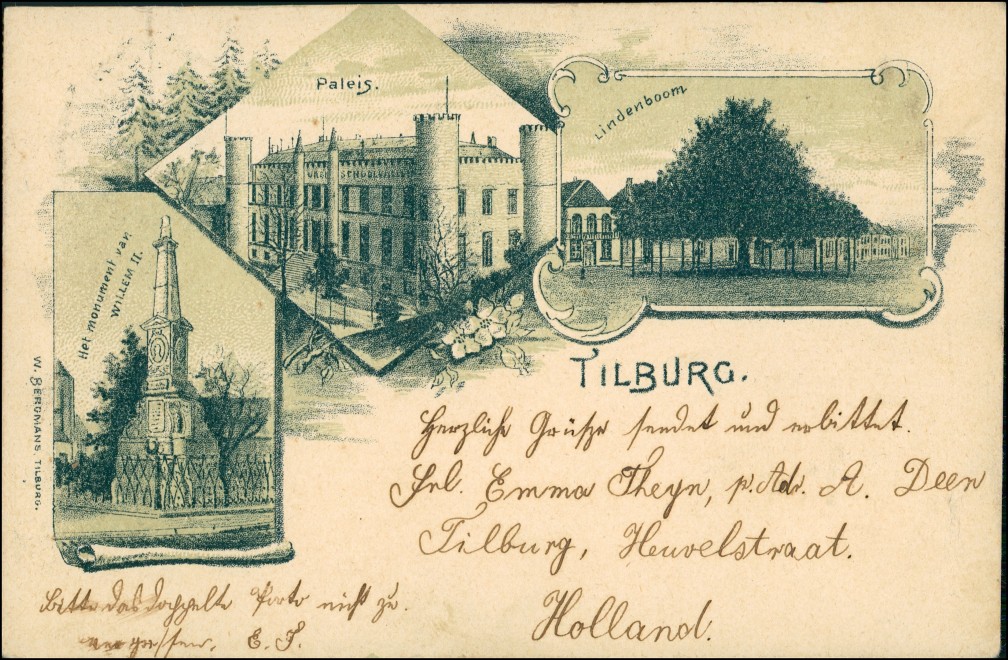 Paleis.
Lindenboom
Het monument van
WILLEM II.
W. BERGMANS. TILBURG.
TILBURG.
Herzliche Grüße sendet und erbittet.
Frl. Emma Theyn, p. Adr. A. Deen
Tilburg, Heuvelstraat.
Holland.
Bitte das doppelte Porto nicht zu
vergessen. E. T.